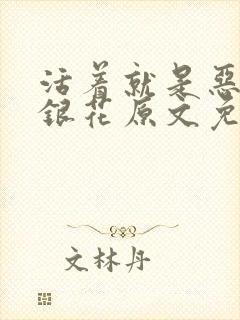 活着就是恶
銀花原文免
文林丹